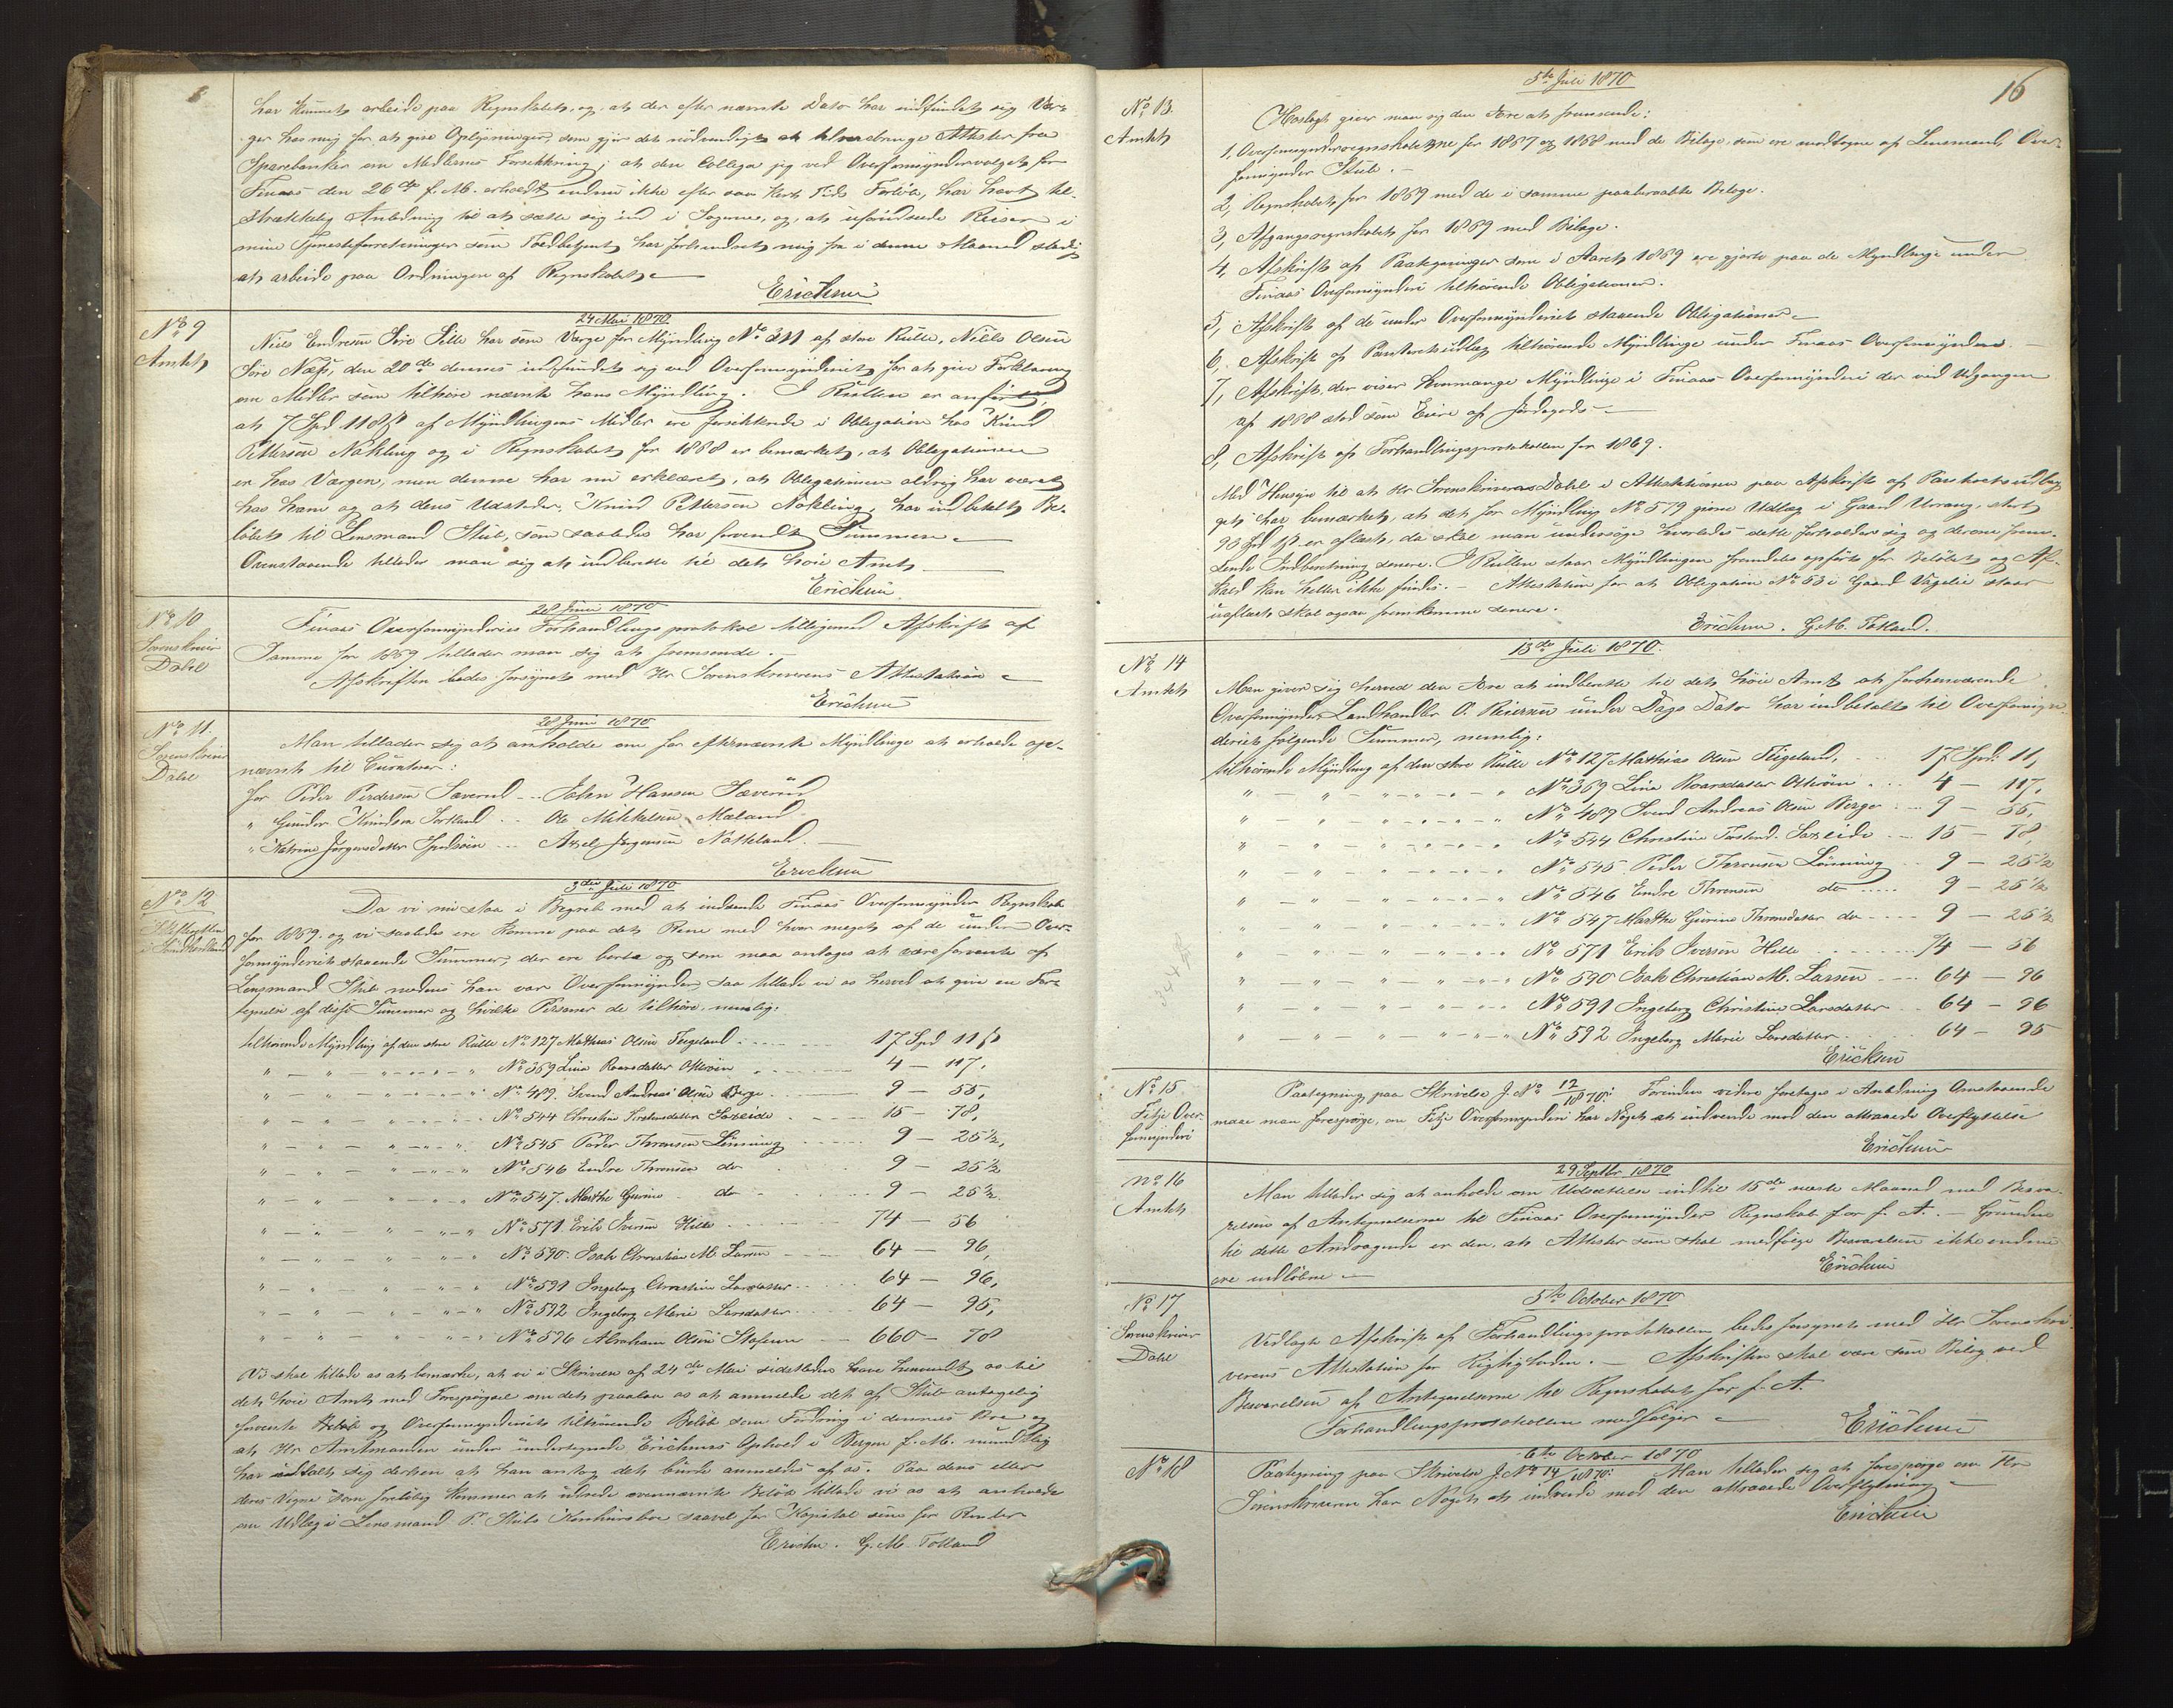 har kunnet arbeide paa Regnskabet, og, at der efter nævnte Dato har indfundet sig Vær-
ger hos mig for at give Oplysninger, som gjør det nødvendigt at tilveiebringe Attester fra
Sparebanker om Midlernes Forrentning; at den Collega jeg ved Overformyndervalget for
Finaas den 26de f. M. erholdt endnu ikke efter saa kort Tids Forløb, har havt til-
strækkelig Anledning til at sætte sig ind i Sagerne, og, at uforudseede Reiser i
mine Tjenesteforretninger som Toldbetjent har forhindret mig fra i denne Maaned stadig
at arbeide paa Ordningen af Regnskabet.
Erichsen
No 9
Amtet
24 Mai 1870
Niels Endresen Søre Selle har som Værge for Myndling No 311 af store Rulle, Niels Olsen
Søre Næss, den 20de dennes indfundet sig ved Overformynderiet for at give Forklaring
om Midler som tilhøre nævnte hans Myndling. I Rullen er anført,
at 7 Spd 118 ß af Myndlingens Midler ere forsikkrede i Obligation hos Knud
Pettersen Nøkling og i Regnskabet for 1868 er bemærket, at Obligationen
er hos Værgen, men denne har nu erklæret, at Obligationen aldrig har været
hos ham og at dens Udsteder, Knud Pettersen Nøkling, har indbetalt Be-
løbet til Lensmand Stub, som saaledes har forvendt Summen.
Ovenstaaende tillader man sig at indberette til det høie Amt.
Erichsen
No 10
Sorenskriver
Dahl
28 Juni 1870
Finaas Overformynderies Forhandlingsprotokol tilligemed Afskrift af
Samme for 1869 tillader man sig at fremsende.
Afskriften bedes forsynet med Hr Sorenskriverens Attestation
Erichsen
No 11
Sorenskriver
Dahl
28 Juni 1870
Man tillader sig at anholde om for efternævnte Myndlinge at erholde op-
nævnt til Curatorer:
for Peder Pedersen Sæverud - - John Hansen Sæverud
" Gunder Knudsen Sortland - - Ole Mikkelsen Mæland
" Katrine Jørgensdatter - - - Axel Jørgensen Notteland.
Erichsen
No 12
Skifteretten
i Søndhordland
3die Juli 1870
Da vi nu staa i Begreb med at indsende Finaas Overformynder Regnskab
for 1869 og vi saaledes ere komne paa det Rene med hvor meget af de under Over-
formynderiet staaende Summer, der ere borte og som maa antages at være forvente af
Lensmand Stub medens han var Overformynder saa tillade vi os herved at give en For-
tegnelse af disse Summer og hvilke Personer de tilhøre, nemlig:
tilhørende Myndling af den store Rulle No 127 Mathias Olsen Teigeland - - - 17 Spd 11 ß
" - " - " No 369 Lina Roarsdatter - - - 4 - 117,
" - " - " No 489 Svend Andreas Olsen Berge - - - 9 - 55,
" - " - " No 544 Christine Torstensdatter Saxeide - - - 15 - 78,
" - " - " No 545 Peder Thronsen Lønning - - - 9 - 25½,
" - " - " No 546 Endre Thronsen do - - - 9 - 25½
" - " - " No 547 Marthe Gurine do - - - 9 - 25½
" - " - " No 571 Erik Iversen Hille - - - 74 - 56
" - " - " No 590 Isak Christian M. Larsen - - - 64 - 96,
" - " - " No 591 Ingeborg Christine Larsdatter - - - 64 - 96,
" - " - " No 592 Ingeborg Marie Larsdatter - - - 64 - 95,
" - " - " No 596 Abraham Olsen - - - 660 - 78
Vi skal tillade os at bemærke, at vi i Skrivelse af 24de Mai sidstleden have henvendt os til
det høie Amt med Forespørgsel om det paalaa os at anmelde det af Stub antagelig
forvente Beløb og Overformynderiets tilhørende Beløb som Fordring i dennes Bo og
at Hr Amtmanden under undertegnede Erichsens Ophold i Bergen f. M. mundtlig
har udtalt sig derhen at han antog det burde anmeldes af os. Paa dens eller
deres Vegne som foreløbig kommer at udrede ovennævnte Beløb tillade vi os at anholde
om Udlæg i Lensmand P. Stubs Konkursbo saavel for Kapital som for Renter
Erichsen. G. M. Totland
16
No 13.
Amtet
5te Juli 1870
Hoslagt giver man sig den Ære at fremsende:
1, Overformynderregnskaberne for 1867 og 1868 med de Bilage, som ere modtagne af Lensmand, Over-
formynder Stub.
2, Regnskabet for 1869 med de i samme paaberaabte Bilage.
3, Afgangsregnskabet for 1869 med Bilage.
4, Afskrift af Paategninger som i Aaret 1869 ere gjorte paa de Myndlinge under
Finaas Overformynderi tilhørende Obligationer.
5, Afskrift af de under Overformynderiet staaende Obligationer
6, Afskrift af Panteretsudlæg tilhørende Myndlinge under Finaas Overformynderi.
7, Afskrift der viser Hvormange Myndlinge i Finaas Overformynderi der ved Udgangen
af 1868 stod som Eiere af Jordegods
8, Afskrift af Forhandlingsprotokollen for 1869.
Med Hensyn til at Hr Sorenskriveren Dahl i Attestationen paa Afskrift af Panteretsudlæg
get har bemærket, at det for Myndling No 579 givne Udlæg i Gaard Urang, stort
93 Spd ß er aflæst, da skal man undersøge hvorledes dette forholder sig og derom frem-
sende Indberetning senere. I Rullen staar Myndlingen fremdeles opført for Beløbet og Af-
kald kan heller ikke findes. - Attestation for at Obligation No 53 i Gaard Vågelie staar
uaflæst skal ogsaa fremkomme senere.
Erichsen. G. M. Totland.
No 14
Amtet
13de Juli 1870.
Man giver sig herved den Ære at indberette til det høie Amt at forhenværende
Overformynder, Landhandler O. Reiersen under Dags Dato har indbetalt til Overformyn-
deriet følgende Summer, nemlig:
tilhørende Myndling af den store Rulle No 127 Mathias Olsen Teigeland, - - - 17 Spd: 11,
" - " - " No 369 Lina Roarsdatter - - - 4 - 117,
" - " - " No 489 Svend Andreas Olsen Berge - - - 9 - 55,
" - " - " No 544 Christine Torstend. Saxeide - - - 15 - 78,
" - " - " No 545 Peder Thronsen Lønning - - - 9 - 25½
" - " - " No 546 Endre Thronsen do - - - 9 - 25½
" - " - " No 547 Marthe Gurine Thronsdatter do - - - 9 - 25½
" - " - " No 571 Erik Iversen Hille - - - 74 - 56
" - " - " No 590 Isak Christian M. Larsen - - - 64 - 96
" - " - " No 591 Ingeborg Christine Larsdatter - - - 64 - 96
" - " - " No 592 Ingeborg Marie Larsdatter - - - 64 - 95
Erichsen
No 15
Fitje Over-
formynderi
Paategning paa Skrivelse J. No 12/1870: Forinden videre foretages i Anledning Ovenstaaende
maae man forespørge, om Fitje Overformynderi har Noget at indvende mod den attraaede Overflyttelse
Erichsen
No 16
Amtet
29 Septbr 1870
Man tillader sig at anholde om Udsættelse indtil 15de næste Maaned med Besva-
relsen af Antegnelserne til Finaas Overformynder Regnskab for f. A. - Grunden
til dette Andragende er den, at Attester som skal medfølge Besvarelsen ikke endnu
ere indløbne
Erichsen
No 17
Sorenskriver
Dahl
5te October 1870
Vedlagte Afskrift af Forhandlingsprotokollen bedes forsynet med Hr Sorenskri-
verens Attestation for Rigtigheden. - Afskriften skal være som Bilag ved
Besvarelsen af Antegnelserne til Regnskabet for f. A.
Forhandlingsprotokollen medfølger
Erichsen
No 18
6te October 1870
Paategning paa Skrivelse J. No 14/1870: Man tillader sig at forespørge om Hr
Sorenskriveren har Noget at indvende mod den attraaede Overflytning
Erichsen